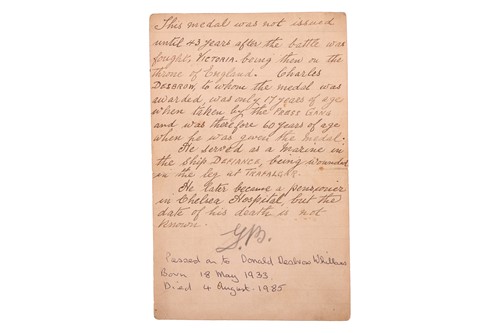 This medal was not issued
until 43 years after the battle was
fought, VICTORIA being then on the
throne of England. Charles
DESBROW, to whom the medal was
awarded, was only 17 years of age
when taken by the PRESS GANG
and was therefore 60 years of age
when he was given the medal.
He served as a marine in
the ship DEFIANCE, being wounded
in the leg at TRAFALGAR.
He later became a pensioner
in Chelsea Hospital, but the
date of his death is not
known.
G.B.
Passed on to Donald Desbrow
Born 18 May 1933.
Died 4 August 1985